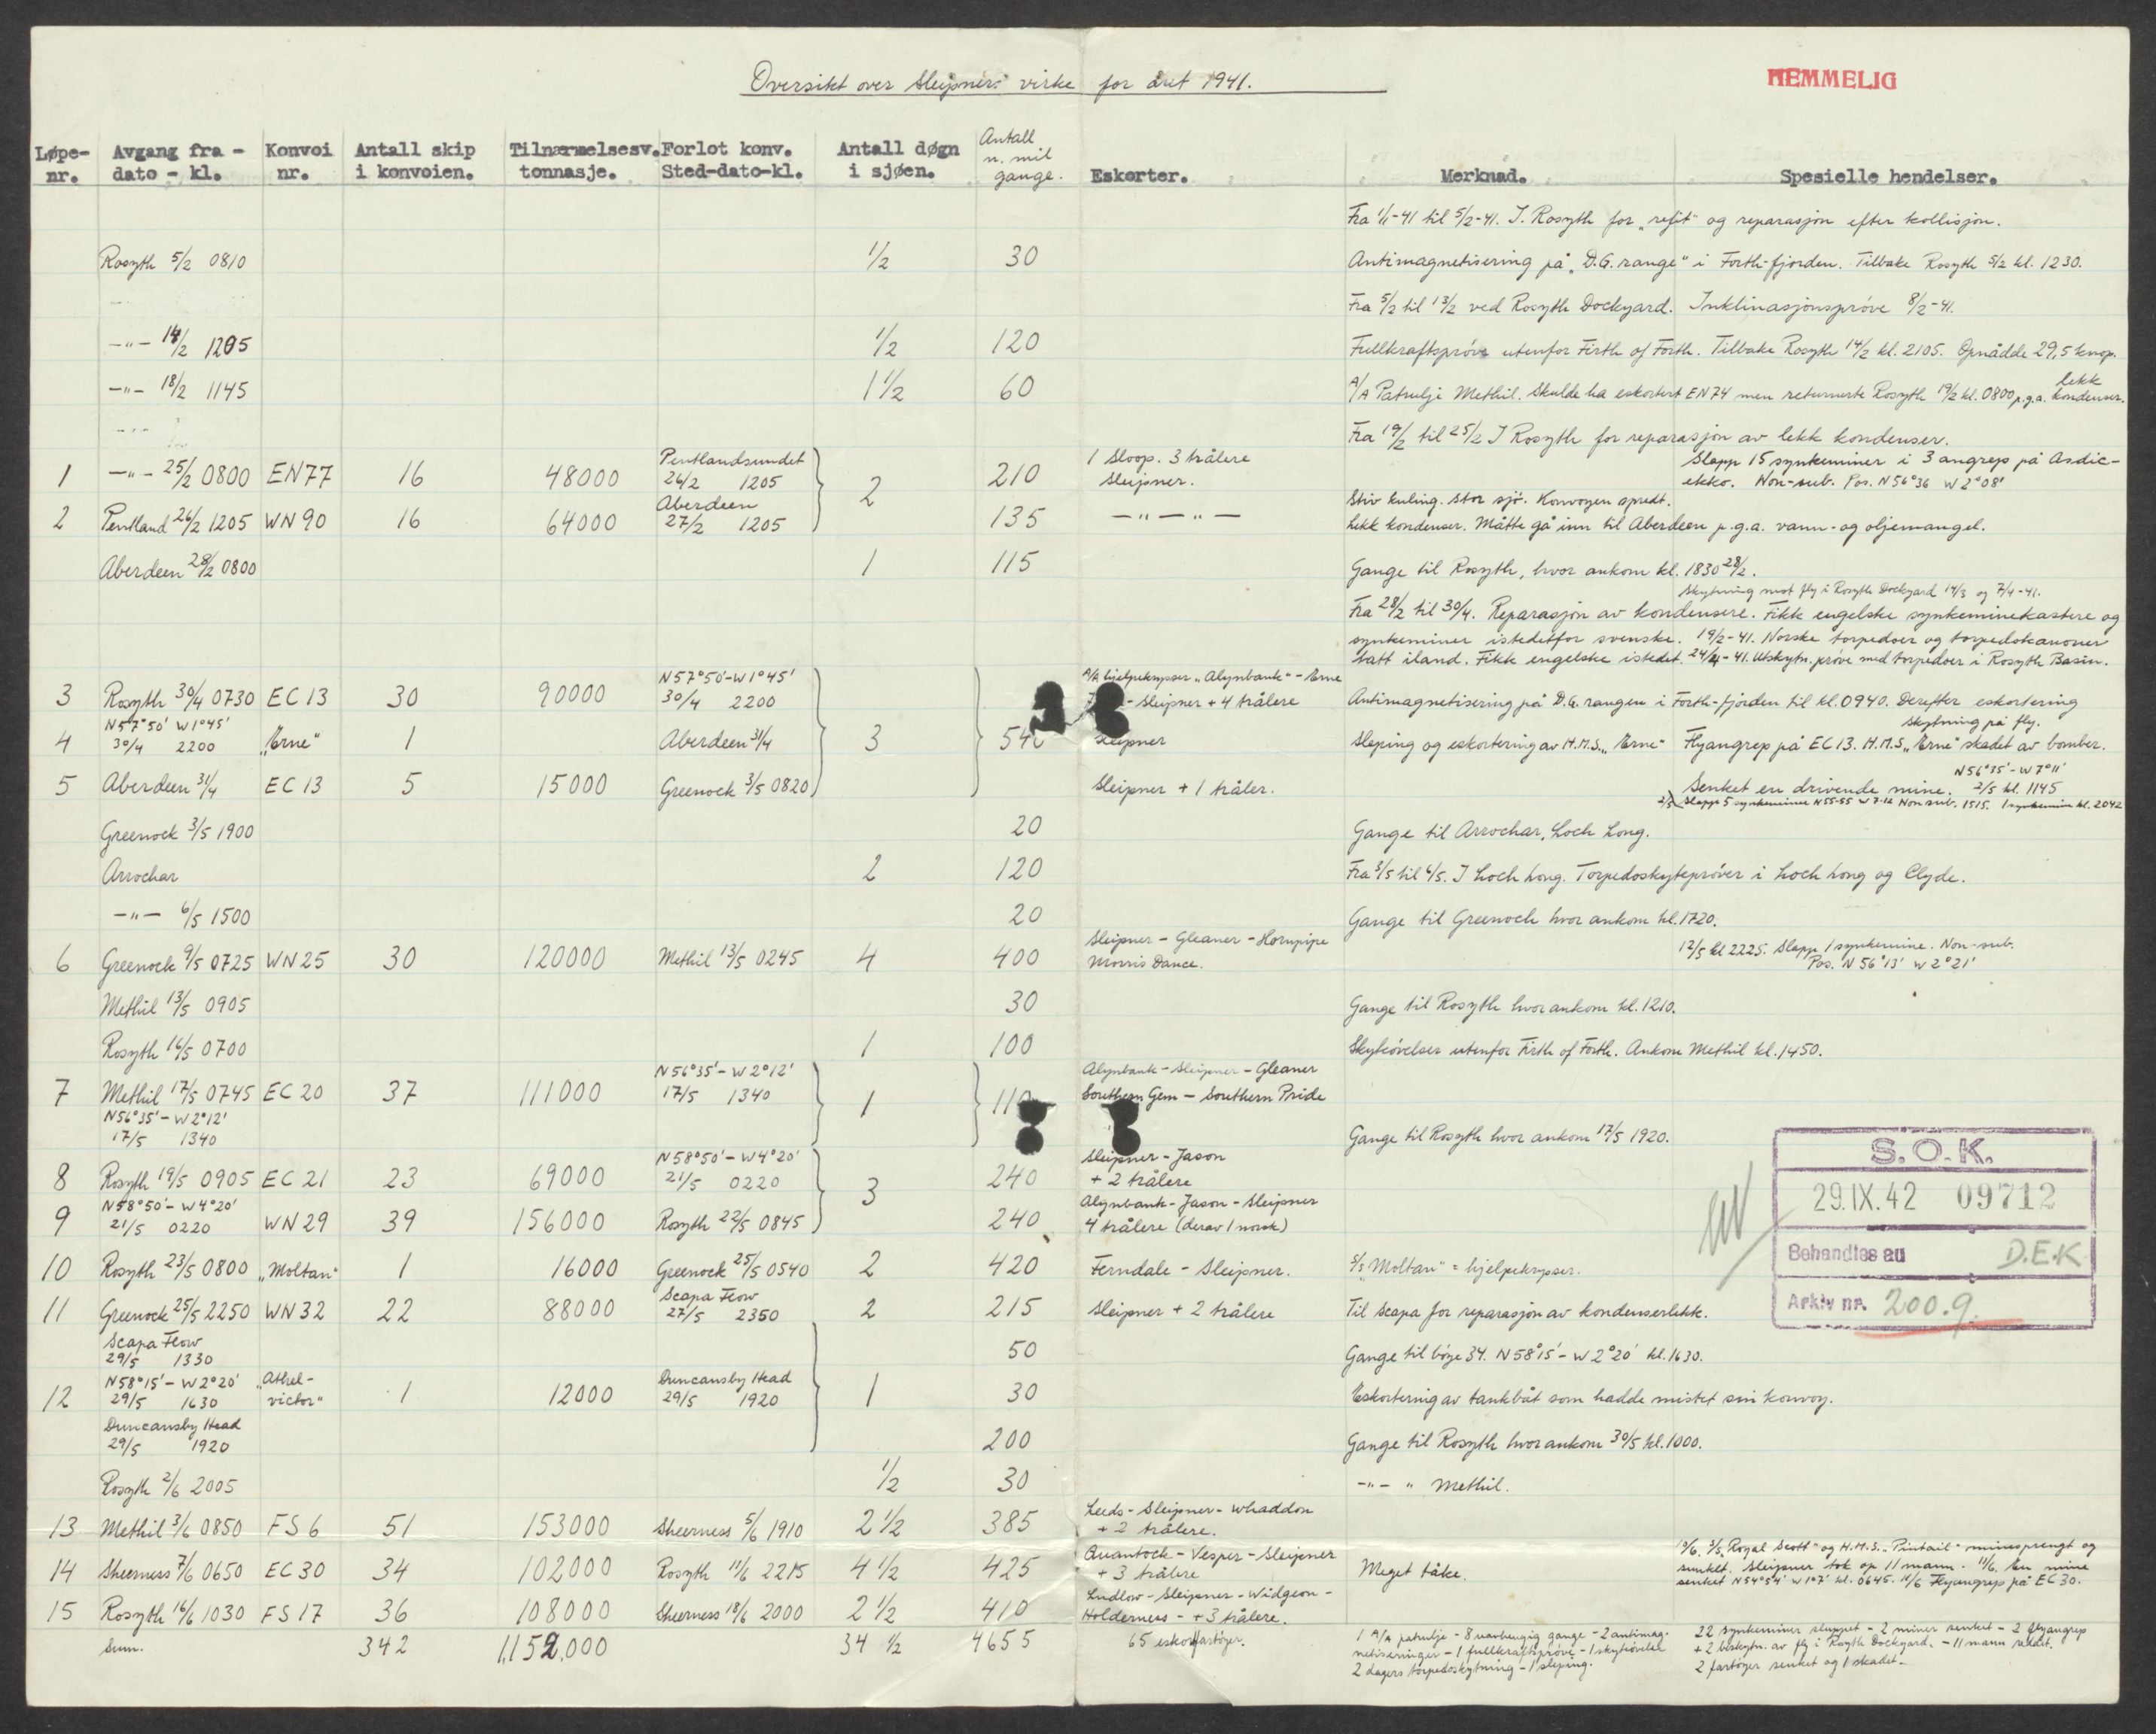 Oversikt over Sleipners virke for året 1941.
HEMMELIG
Løpe-nr. Avgang fra - dato - kl. Konvoi nr. Antall skip i konvoien. Tilnærmelsesv. tonnasje. Forlot konv. Sted-dato-kl. Antall døgn i sjøen. Antall n. mil gange. Eskorter. Merknad. Spesielle hendelser.
Fra 1/1-41 til 5/2-41. I Rosyth for „refit“ og reparasjon efter kollisjon.
Rosyth 5/2 0810 1/2 30 Antimagnetisering på „D.G. range“ i Forth-fjorden. Tilbake Rosyth 5/2 kl. 1230.
Fra 5/2 til 13/2 ved Rosyth Dockyard. Inklinasjonsprøve 8/2-41.
-"- 14/2 1205 1/2 120 Fullkraftsprøve utenfor Firth of Forth. Tilbake Rosyth 14/2 kl. 2105. Opnådde 29,5 knop.
-"- 18/2 1145 1 1/2 60 A/A Patrulje Methil. Skulde ha eskortert EN74 men returnerte Rosyth 19/2 kl. 0800 p.g.a. lekk kondenser.
Fra 19/2 til 25/2 I Rosyth for reparasjon av lekk kondenser.
1 -"- 25/2 0800 EN77 16 48000 Pentlandsundet 26/2 1205 2 210 1 Sloop. 3 trålere Sleipner. Slapp 15 synkeminer i 3 angrep på Asdic-ekko. Non-sub. Pos. N56°36 W2°08'
2 Pentland 26/2 1205 WN90 16 64000 Aberdeen 27/2 1205 135 -"-"- Stiv kuling. Stor sjø. Konvoyen spredt. Lekk kondenser. Måtte gå inn til Aberdeen p.g.a. vann- og oljemangel.
Aberdeen 28/2 0800 1 115 Gange til Rosyth, hvor ankom kl. 1830 28/2.
Skytning mot fly i Rosyth Dockyard 14/3 og 7/4-41.
Fra 28/2 til 30/4. Reparasjon av kondensere. Fikk engelske synkeminekastere og
synkeminer istedetfor svenske. 19/2-41. Norske torpedoer og torpedokanoner
tatt iland. Fikk engelske istedet. 24/4-41. Utskytn. prøve med torpedoer i Rosyth Basin.
3 Rosyth 30/4 0730 EC13 30 90000 N57°50'-W1°45' 30/4 2200 A/A hjelpekrysser „Alynbank“ - Erne - Sleipner + 4 trålere Antimagnetisering på D.G. rangen i Forth-fjorden til kl. 0940. Derefter eskortering
4 N57°50' W1°45' 30/4 2200 „Erne“ 1 Aberdeen 31/4 3 54 Sleipner Sleping og eskortering av H.M.S. „Erne“ Skytning på fly. Flyangrep på EC13. H.M.S. „Erne“ skadet av bomber.
5 Aberdeen 31/4 EC13 5 15000 Greenock 3/5 0820 Sleipner + 1 tråler. Senket en drivende mine. N56°35'-W7°11' 2/5 kl. 1145
2/5 Slapp 5 synkeminer N55-55 W7-12 Non sub. 1515. 1 synkemin kl. 2042
Greenock 3/5 1900 20 Gange til Arrochar, Loch Long.
Arrochar 2 120 Fra 3/5 til 6/5. I Loch Long. Torpedoskyteprøver i Loch Long og Clyde.
-"- 6/5 1500 20 Gange til Greenock hvor ankom kl. 1720.
6 Greenock 9/5 0725 WN25 30 120000 Methil 13/5 0245 4 400 Sleipner - Gleaner - Hornpipe Morris Dance. 12/5 kl 2225. Slapp 1 synkemine. Non-sub. Pos. N56°13' W2°21'
Methil 13/5 0905 30 Gange til Rosyth hvor ankom kl. 1210.
Rosyth 16/5 0700 1 100 Skyteøvelser utenfor Firth of Forth. Ankom Methil kl. 1450.
7 Methil 17/5 0745 EC20 37 111000 N56°35'-W2°12' 17/5 1340 1 110 Alynbank - Sleipner - Gleaner Southern Gem - Southern Pride
N56°35'-W2°12' 17/5 1340 Gange til Rosyth hvor ankom 17/5 1920.
8 Rosyth 19/5 0905 EC21 23 69000 N58°50'-W4°20' 21/5 0220 3 240 Sleipner - Jason + 2 trålere
9 N58°50'-W4°20' 21/5 0220 WN29 39 156000 Rosyth 22/5 0845 240 Alynbank - Jason - Sleipner 4 trålere (derav 1 norsk)
10 Rosyth 23/5 0800 „Moltan“ 1 16000 Greenock 25/5 0540 2 420 Ferndale - Sleipner. S/S „Moltan“ = hjelpekrysser.
11 Greenock 25/5 2250 WN32 22 88000 Scapa Flow 27/5 2350 2 215 Sleipner + 2 trålere Til Scapa for reparasjon av kondenserlekk.
Scapa Flow 29/5 1330 50 Gange til bøye 34. N58°15'-W2°20' kl. 1630.
12 N58°15'-W2°20' 29/5 1630 „Athel-victor“ 1 12000 Duncansby Head 29/5 1920 1 30 Eskortering av tankbåt som hadde mistet sin konvoy.
Duncansby Head 29/5 1920 200 Gange til Rosyth hvor ankom 30/5 kl. 1000.
Rosyth 2/6 2005 1/2 30 -"- " Methil.
13 Methil 3/6 0850 FS6 51 153000 Sheerness 5/6 1910 2 1/2 385 Leeds - Sleipner - Whaddon + 2 trålere.
14 Sheerness 7/6 0650 EC30 34 102000 Rosyth 11/6 2215 4 1/2 425 Quantock - Vesper - Sleipner + 3 trålere Meget tåke. 10/6. S/S „Royal Scott“ og H.M.S. „Pintail“ minesprengt og sunket. Sleipner tok op 11 mann. 11/6. En mine senket N54°54' W1°7' kl. 0645. 11/6 Flyangrep på EC30.
15 Rosyth 16/6 1030 FS17 36 108000 Sheerness 18/6 2000 2 1/2 410 Ludlow - Sleipner - Widgeon - Holderness - + 3 trålere.
Sum. 342 1,152,000 34 1/2 4655 65 eskortfartøyer. 1 A/A patrulje - 8 uavhengig gange - 2 antimagnetiseringer - 1 fullkraftsprøve - 1 skyteøvelse 2 dagers torpedoskytning - 1 sleping. 22 synkeminer sluppet - 2 miner senket - 2 flyangrep + 2 beskytn. av fly i Rosyth Dockyard. - 11 mann reddet. 2 fartøyer senket og 1 skadet -
S.O.K.
29.IX.42 09712
Behandles av D.E.K
Arkiv nr. 200.9.